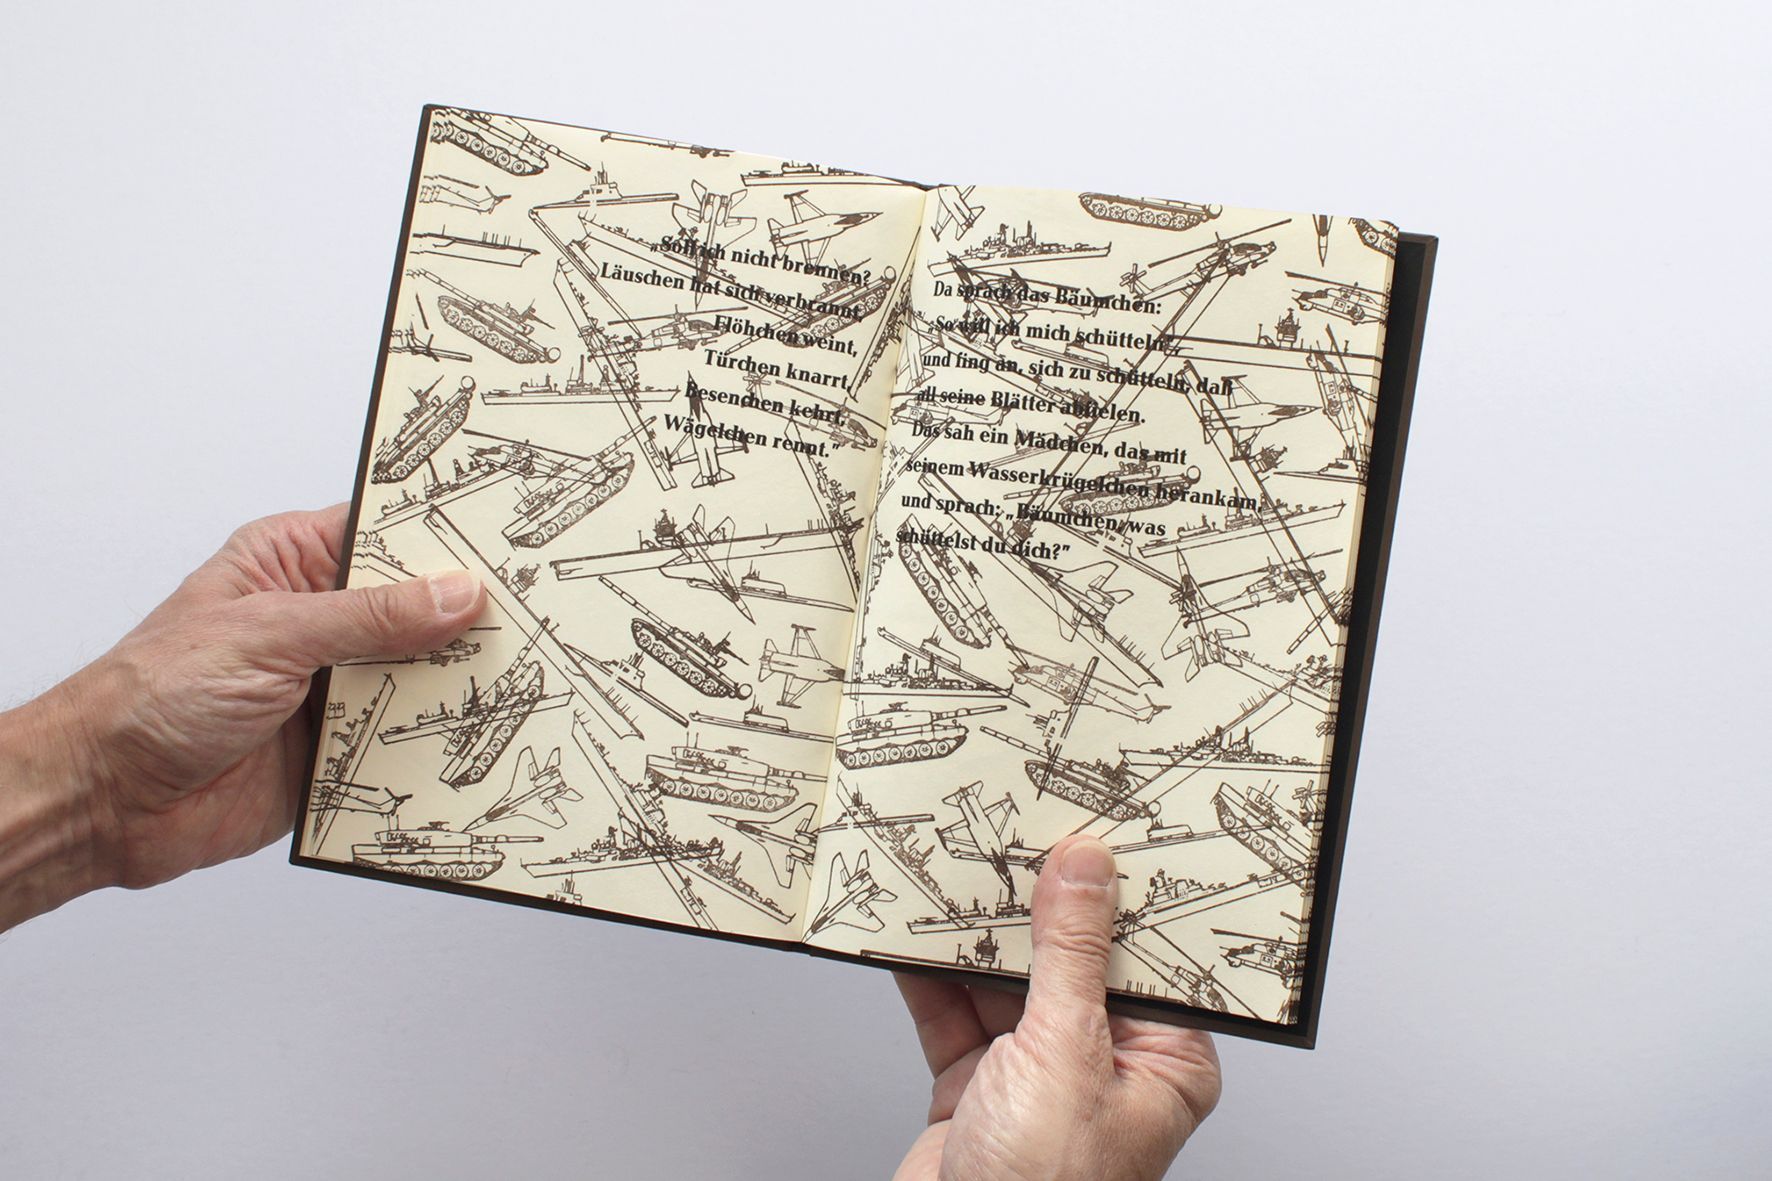 „Soll ich nicht brennen?
Läuschen hat sich verbrannt,
Flöhchen weint,
Türchen knarrt,
Besenchen kehrt,
Wägelchen rennt.”
Da sprach das Bäumchen:
„So will ich mich schütteln”,
und fing an, sich zu schütteln, daß
all seine Blätter abfielen.
Das sah ein Mädchen, das mit
seinem Wasserkrügelchen herankam,
und sprach: „Bäumchen, was
schüttelst du dich?”